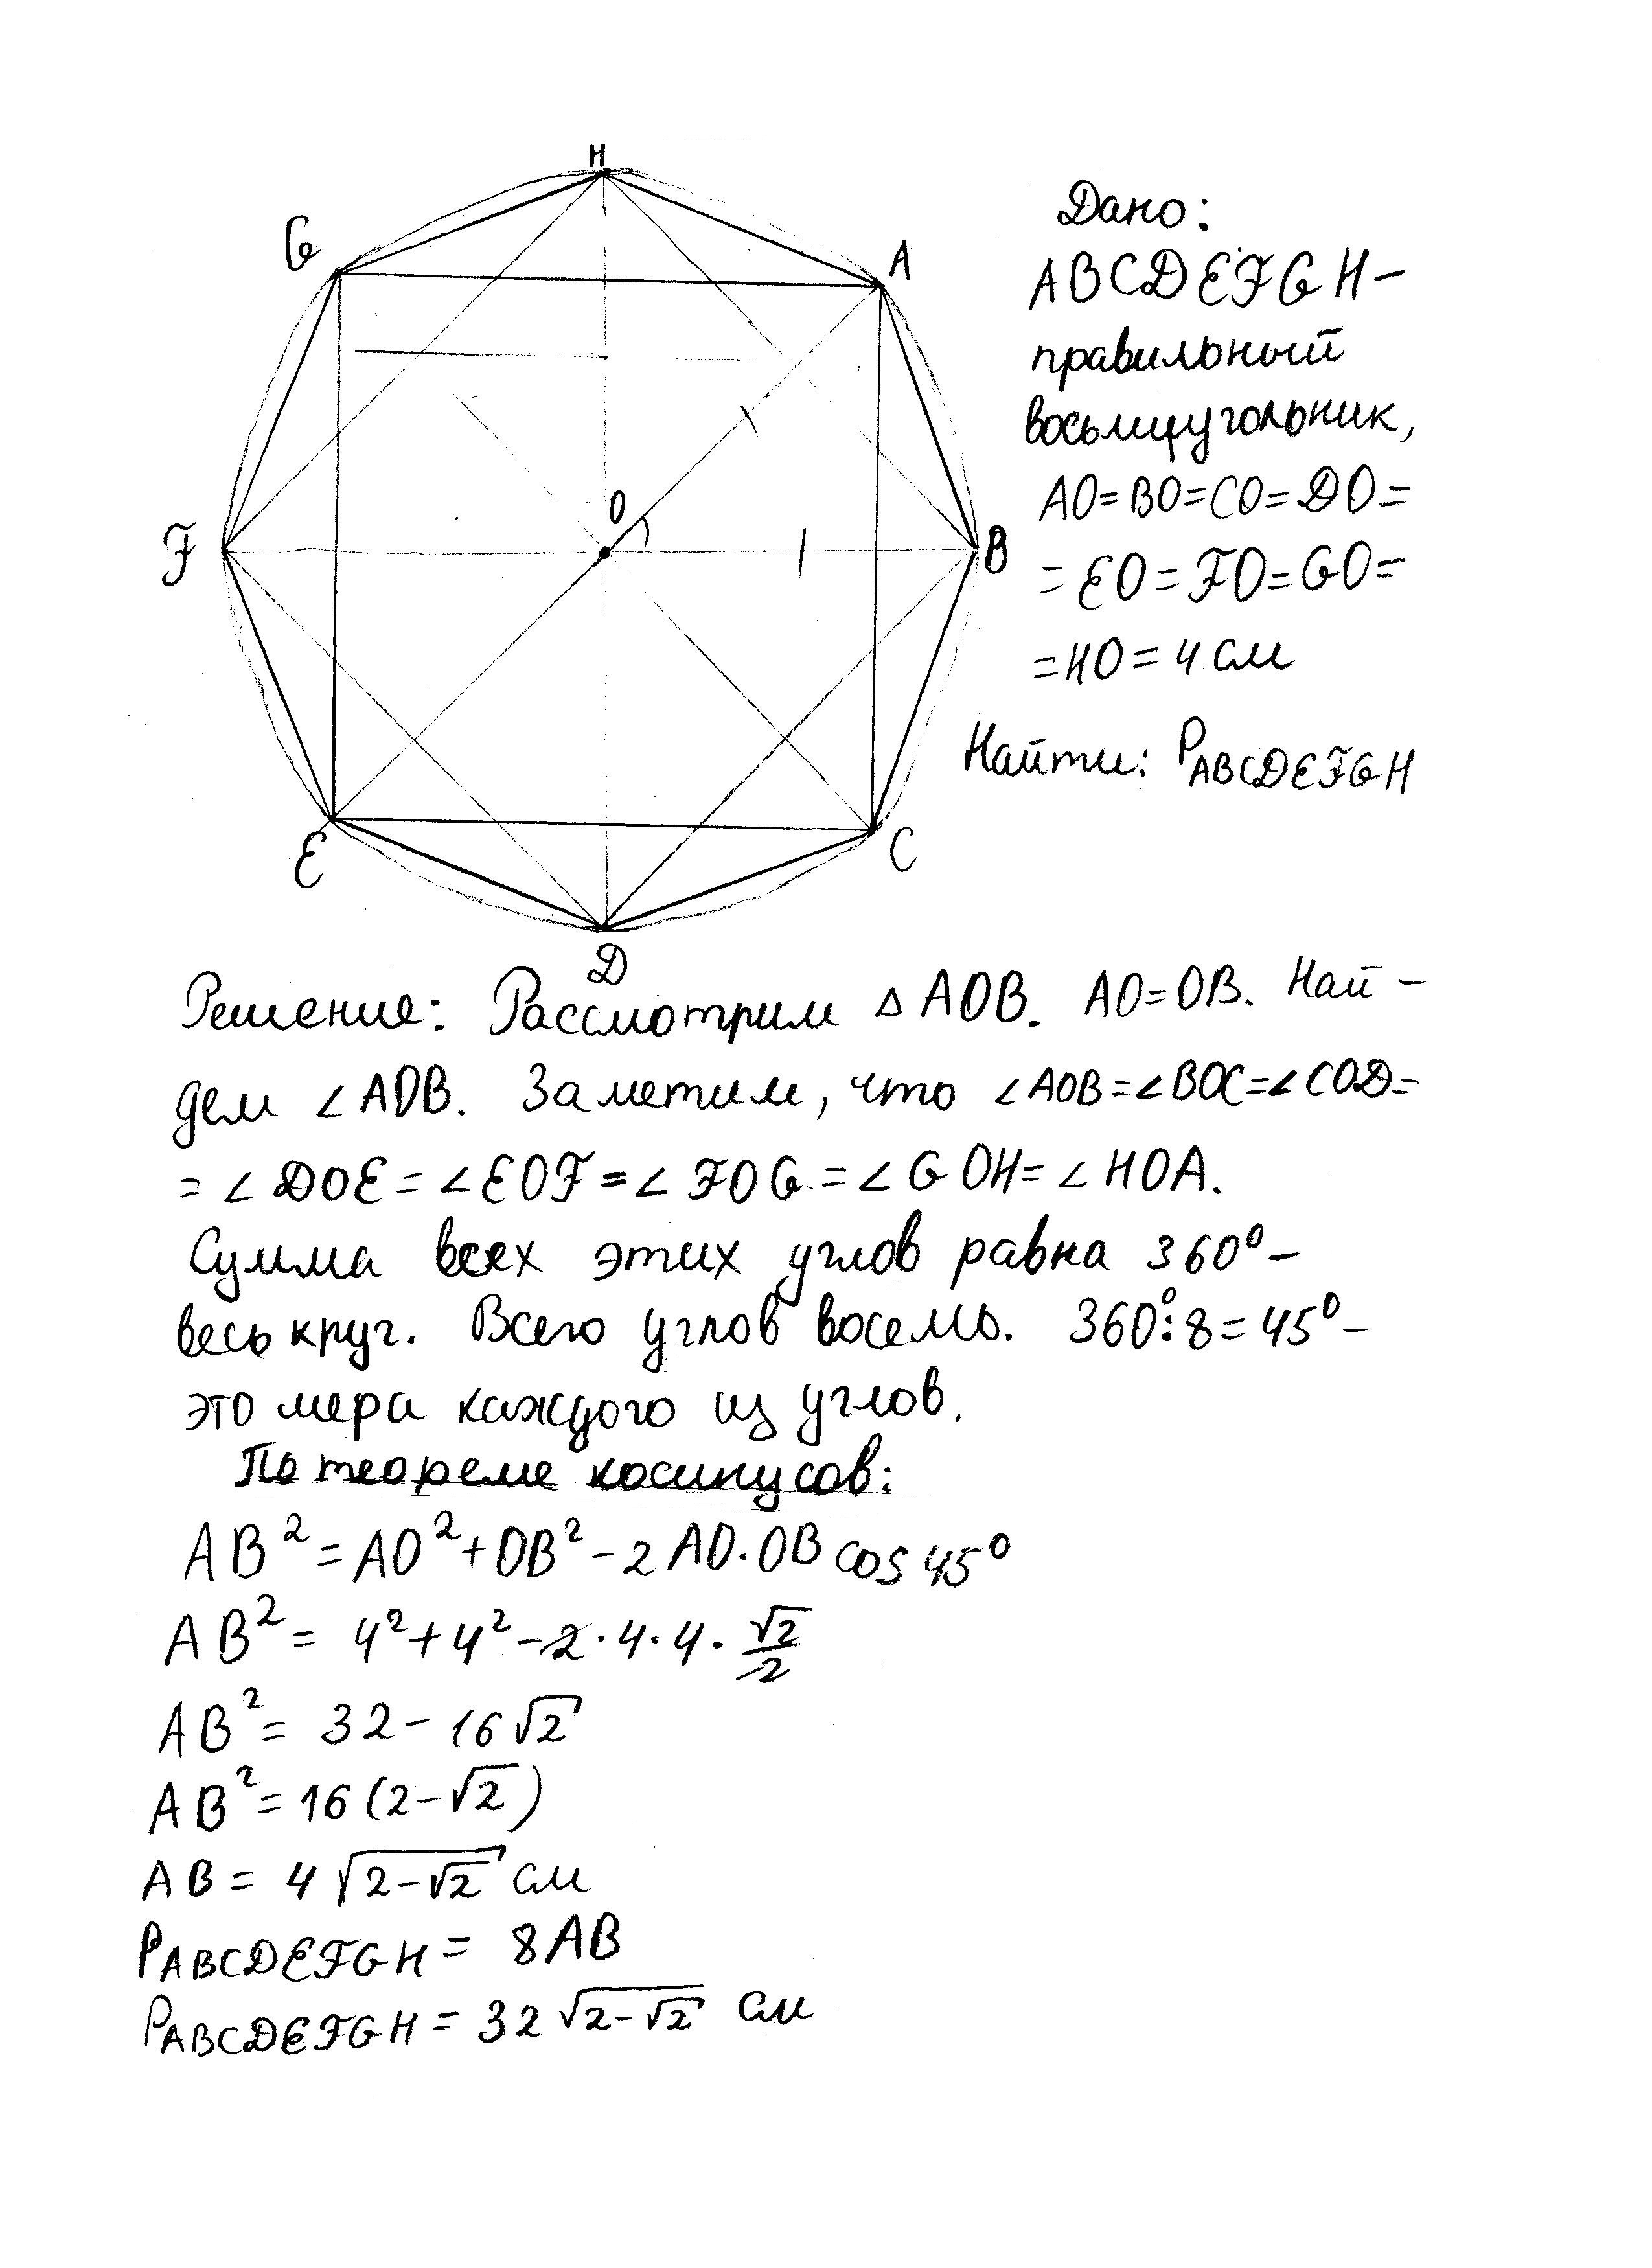 H
G
A
O
F
B
E
C
D
Дано:
ABCDEFGH–
правильный
восьмиугольник,
AO=BO=CO=DO=
=EO=FO=GO=
=HO=4 см
Найти: P_ABCDEFGH
Решение: Рассмотрим △AOB. AO=OB. Най-
дем ∠AOB. Заметим, что ∠AOB=∠BOC=∠COD=
=∠DOE=∠EOF=∠FOG=∠GOH=∠HOA.
Сумма всех этих углов равна 360°–
весь круг. Всего углов восемь. 360°:8=45°–
это мера каждого из углов.
По теореме косинусов:
AB²=AO²+OB²-2AO·OB cos 45°
AB²=4²+4²-2·4·4·√2/2
AB²=32-16√2
AB²=16(2-√2)
AB=4√(2-√2) см
P_ABCDEFGH=8AB
P_ABCDEFGH=32√(2-√2) см